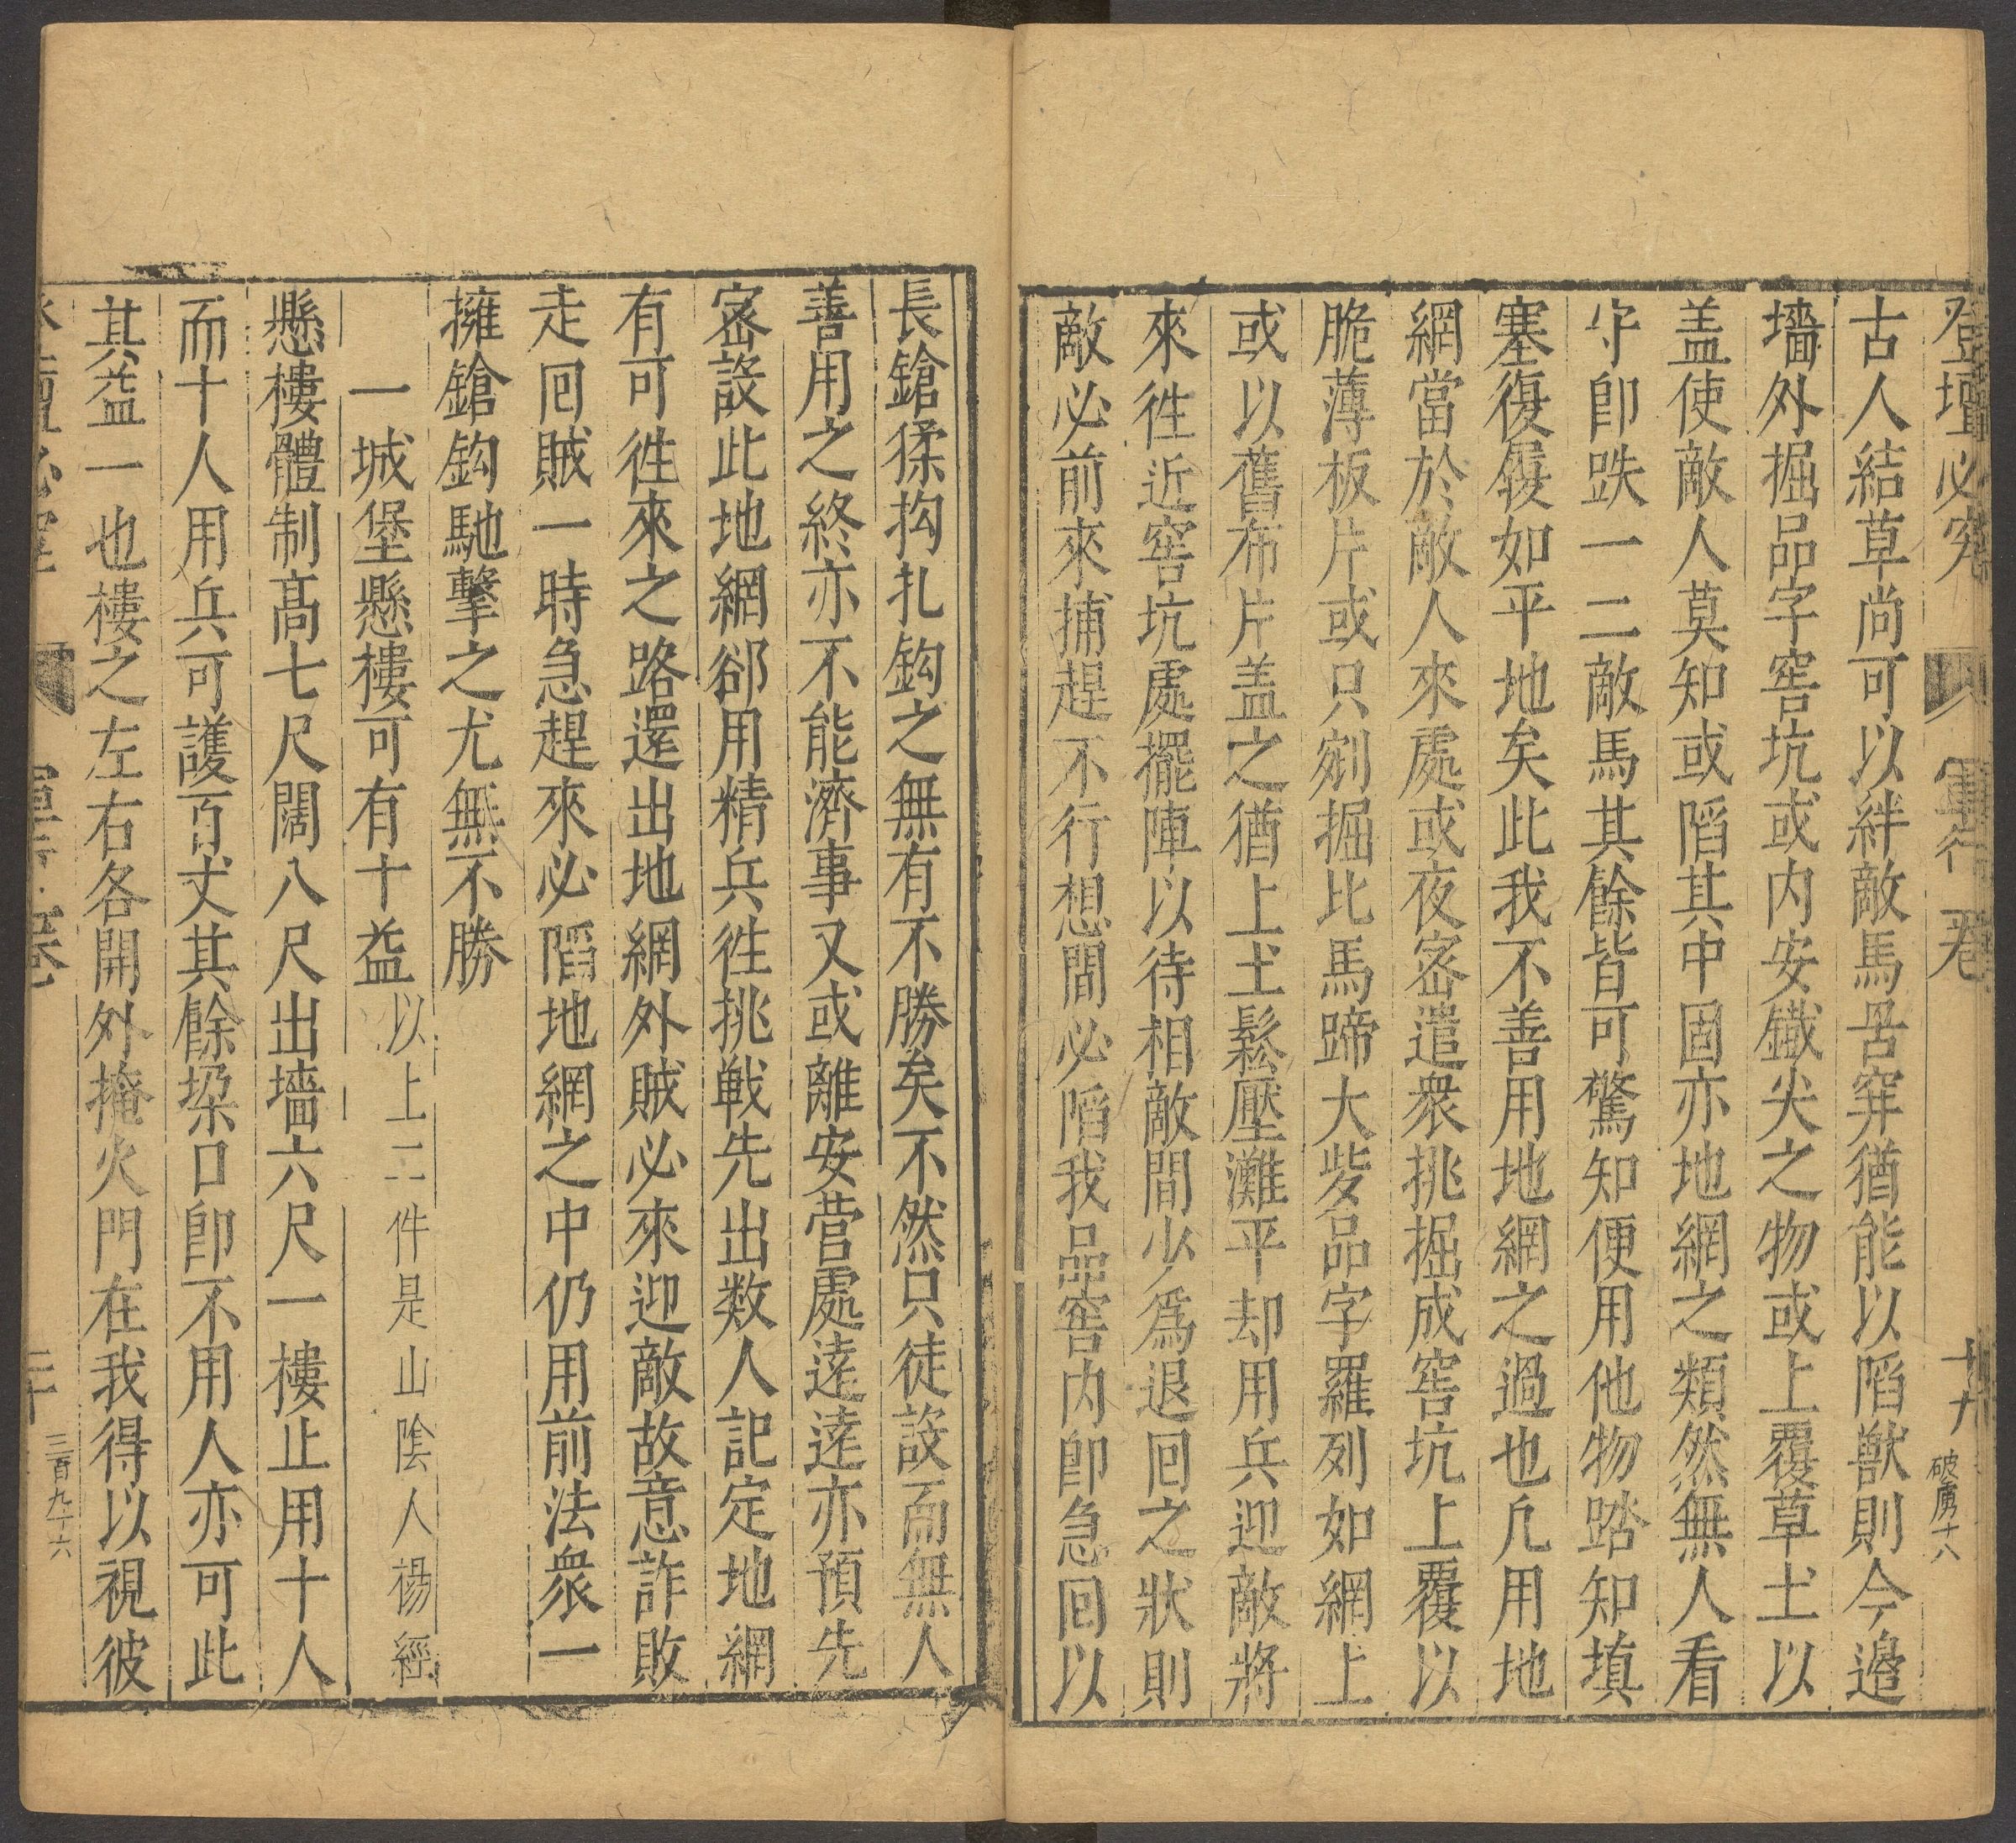 登壇必究 軍行 卷 十九 破虜十八
古人結草尚可以絆敵馬罟穽猶能以陷獸則今邊
墻外掘品字窖坑或内安鐵尖之物或上覆草土以
盖使敵人莫知或陷其中固亦地網之類然無人看
守即跌一二敵馬其餘皆可驚知便用他物踏知填
塞復履如平地矣此我不善用地網之過也凢用地
網當於敵人來處或夜宻遣衆挑掘成窖坑上覆以
脆薄板片或只剜掘比馬蹄大些品字羅列如網上
或以舊布片盖之猶上土鬆壓灘平却用兵迎敵將
來徃近窖坑處擺陣以待相敵間少爲退囘之狀則
敵必前來捕趕不行想間必陷我品窖内即急回以
長鎗揉抅扎鈎之無有不勝矣不然只徒設而無人
善用之終亦不能濟事又或離安营處逺逺亦預先
宻設此地網郤用精兵徃挑戦先出数人記定地網
有可徃來之路還出地網外賊必來迎敵故意詐敗
走囘賊一時急趕來必陷地網之中仍用前法衆一
擁鎗鈎馳擊之尤無不勝
一城堡懸樓可有十益 以上二件是山陰人楊經
懸樓體制髙七尺闊八尺出墻六尺一樓止用十人
而十人用兵可護百丈其餘垜口即不用人亦可此
其益一也樓之左右各開外掩火門在我得以視彼
二十 三百九十六